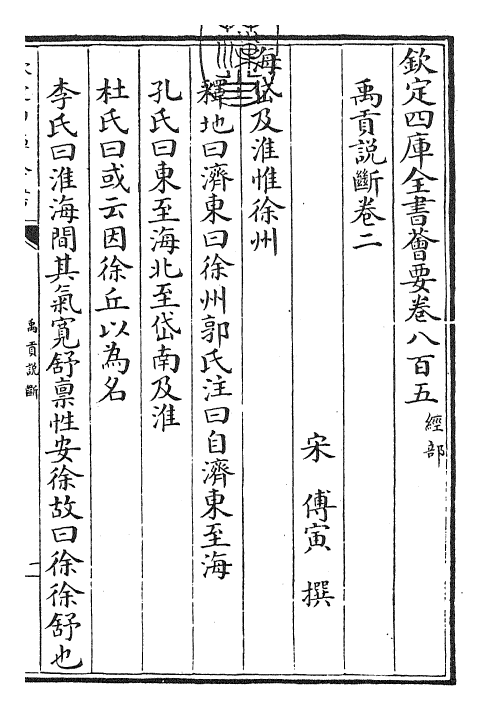 欽定四庫全書薈要卷八百五 經部
禹貢說斷卷二
宋 傅寅 撰
海岱及淮惟徐州
釋地曰濟東曰徐州郭氏注曰自濟東至海
孔氏曰東至海北至岱南及淮
杜氏曰或云因徐丘以為名
李氏曰淮海間其氣寛舒禀性安徐故曰徐徐舒也
禹貢説斷
一